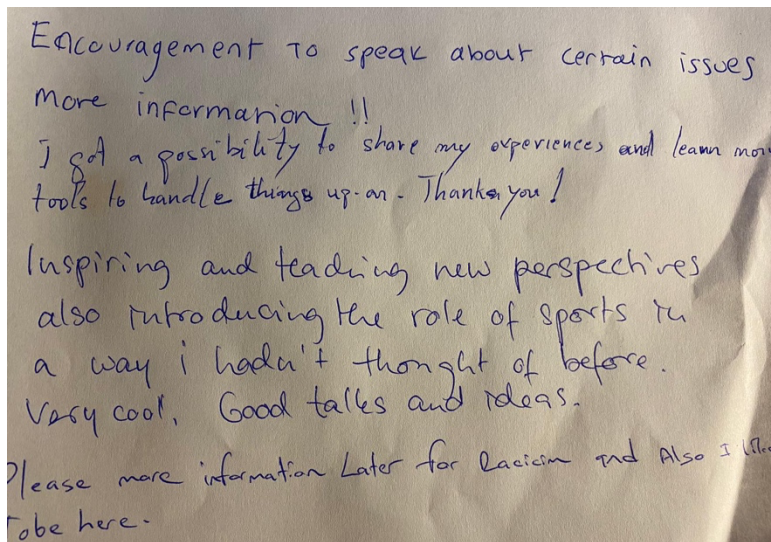 Encouragement to speak about certain issues
more information !!
I got a possibility to share my experiences and learn more
tools to handle things up-on. Thank you!
Inspiring and teaching new perspectives
also introducing the role of sports in
a way i hadn't thought of before.
Very cool. Good talks and ideas.
Please more information Later for Racicim and Also I like
to be here.